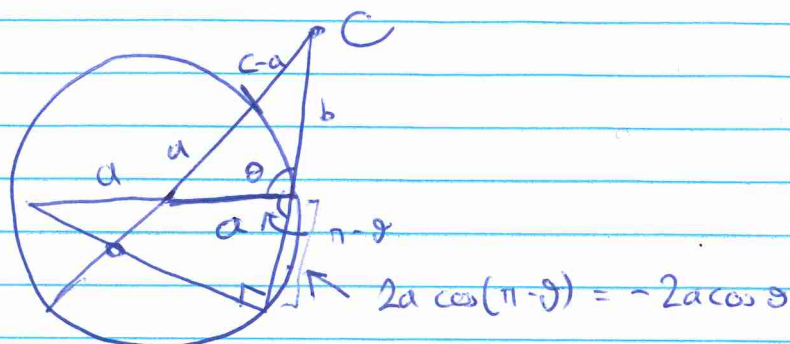 C
c-a
b
a
a
θ
a
π-θ
a
2a cos(π-θ) = -2a cos θ